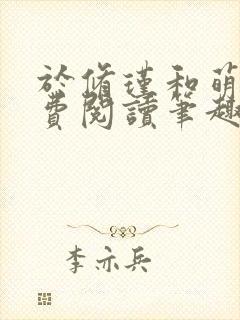 於脩瑾和萌
費閱讀筆趣
李亦兵